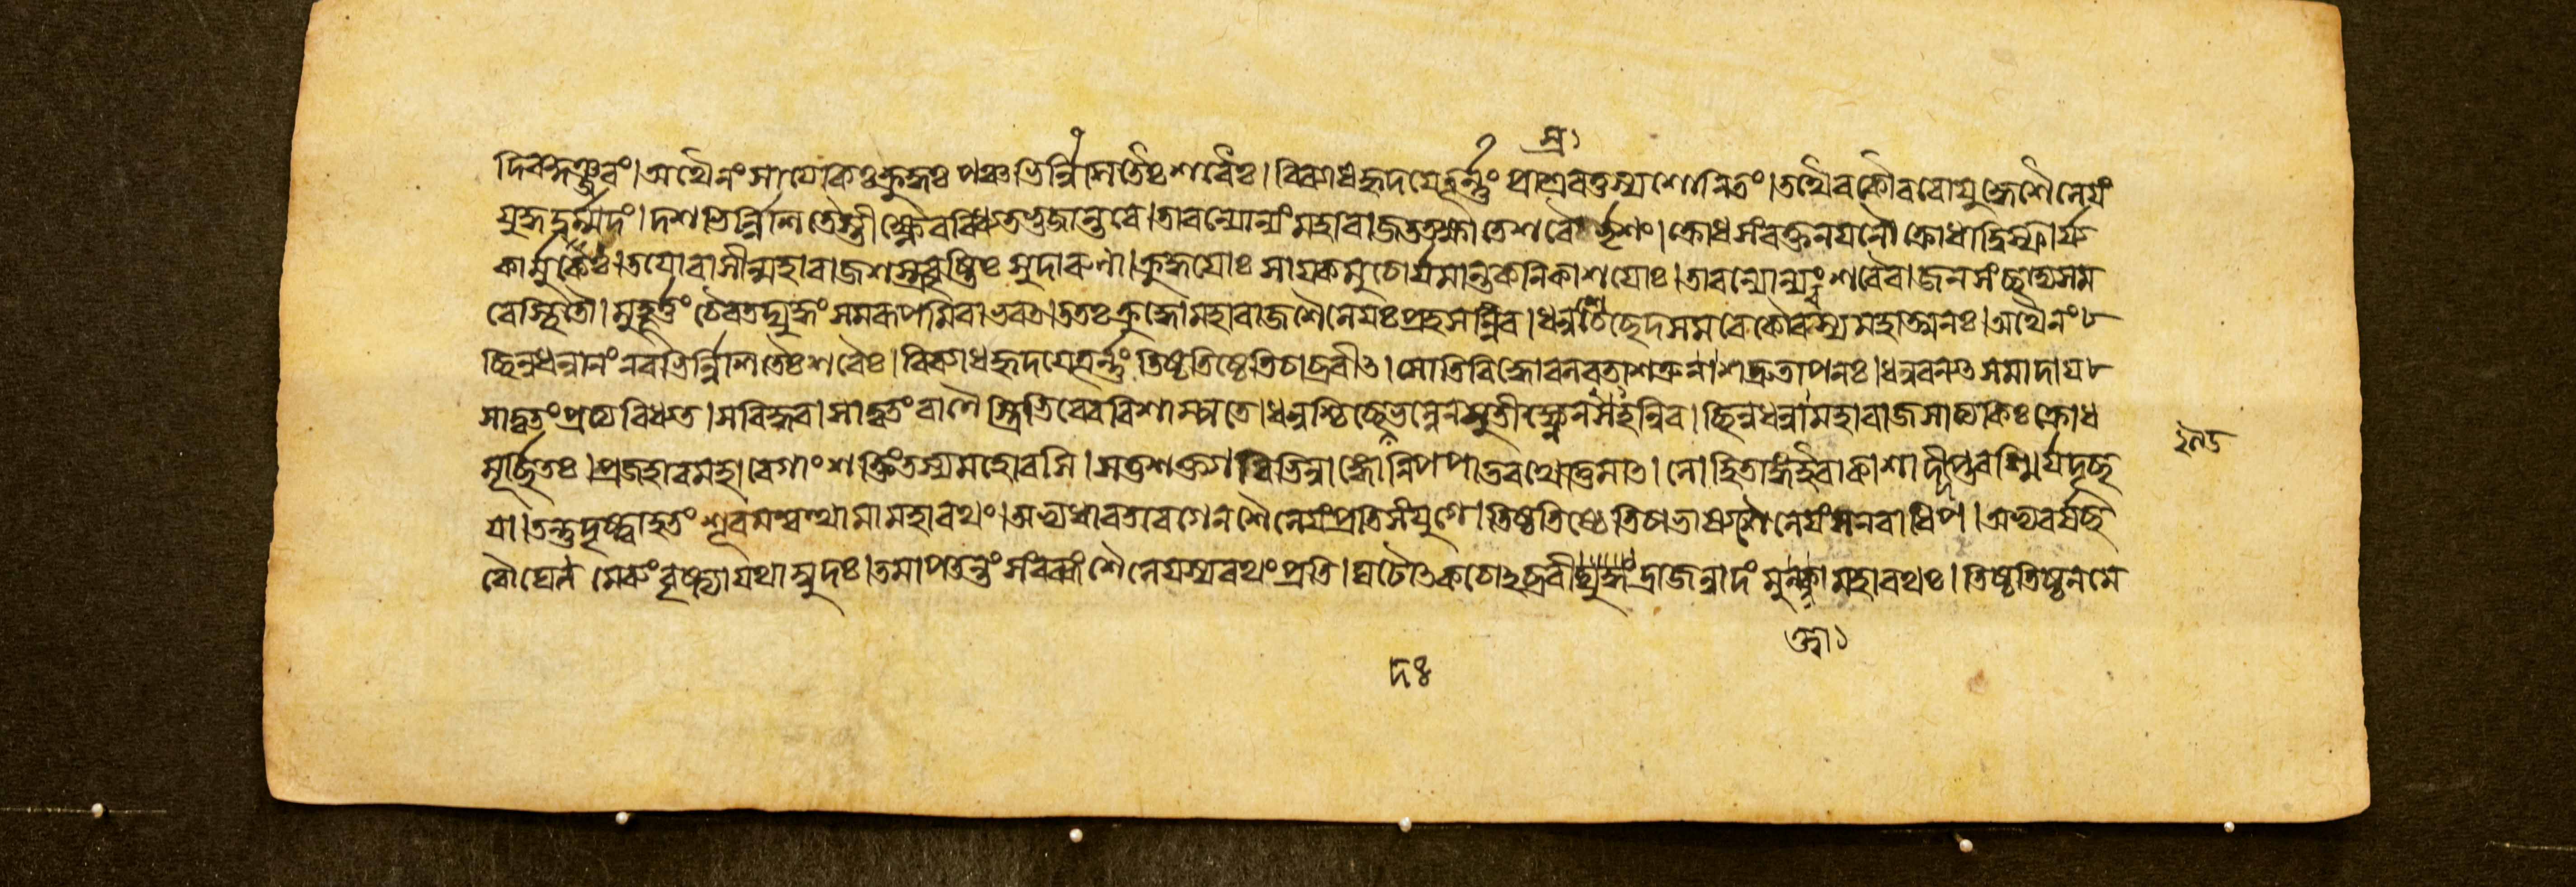 স্র১
দিবকুঞ্জরং।অথৈনং সাত্যেকিঃক্রুদ্ধঃ পঞ্চভির্ন্নিসিতৈঃ শরৈঃ।বিব্যাধহৃদয়েতূর্ন্তুং প্রাশ্রবত্তস্য শোনিতং।তথৈবকৌরবোযুদ্ধেশৈনেয়ং
যুদ্ধদুর্ম্মদং।দশভির্ন্নিশিতৈস্তীক্ষ্ণৈরবিধ্যতভুজান্তরে।তাবন্যোন্যং মহারাজততক্ষাতেশরৈর্ভৃশং।ক্রোধসংরক্তনয়নৌক্রোধাদ্বিস্ফার্য্য
কার্মুকৈঃ।তয়োরাসীন্মহারাজশস্ত্রবৃষ্টিঃ সুদারুণা।ক্রুদ্ধয়োঃ সায়কমুচোর্যমান্তকনিকাশয়োঃ।তাবন্যোন্যং শরৈরাজনসংচ্ছাদ্যসম
রেস্থিতৌ।মুহূর্ত্তং চৈবতদ্যুদ্ধং সমরূপমিবাভবত্।ততঃক্রুদ্ধোমহারাজশৈনেয়ঃপ্রহসন্নিব।ধনুশ্চিছেদসমরেকৌরব্যস্যমহাত্মনঃ।অথৈনং
ছিন্নধন্বানং নবভির্ন্নিশিতৈঃশরৈঃ।বিব্যাধহৃদয়েতূর্ন্তুং তিষ্ঠতিষ্ঠেতিচাব্রবীৎ।সোতিবিদ্ধোবলবতাশত্রুনাশত্রুতাপনঃ।ধনুরন্যৎসমাদায়
সাত্বতংপ্রত্যেবিধ্যত।সবিদ্ধ্বাসাত্বতং বাণৈস্ত্রিভিরেববিশাম্পতে।ধনুশ্চিচ্ছেদভল্লেনসুতীক্ষ্ণেনহসন্নিব।ছিন্নধন্বামহারাজসাত্যকিঃক্রোধ
মূর্চ্ছিতঃ।প্রজহারমহাবেগাংশক্তিংতস্যমহোরসি।সতুশক্ত্যাবিভিন্নাঙ্গোনিপপাতরথোত্তমাৎ।লোহিতাঙ্গইবাকাশাদ্দীপ্তরশ্মির্যদৃচ্ছ
য়া।তন্তুদৃষ্ট্বাহতং শূরমশ্বত্থামামহারথং।অভ্যধাবতবেগেনশৈনেয়ংপ্রতিসংযুগে।তিষ্ঠতিষ্ঠেতিচাভাষ্যশৈনেয়ংসনরাধিপ।অভ্যবর্ষচ্ছ
রৌঘেন মেরুংবৃষ্ট্যাযথাম্বুদঃ।তমাপতন্তং সংরব্ধং শৈনেয়স্যরথংপ্রতি।ঘটোৎকচোঽব্রবীদ্রাজন্নাদং মুক্ত্বামহারথঃ।তিষ্ঠতিষ্ঠনমে